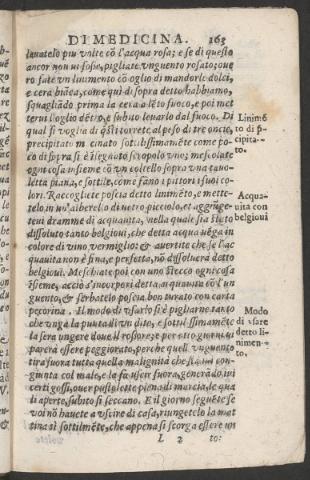 DI MEDICINA. 163
lauatelo piu volte cō l'acqua rosa; e se di questo
ancor non vi fosse, pigliate vnguento rosato; oue
ro fate vn linimento cō oglio di mandorle dolci,
e cera biāca, come qui di sopra detto habbiamo,
squagliādo prima la cera a lēto fuoco, e poi met
terui l'oglio dētro, e subito leuarlo dal fuoco. Di
qual si voglia di q̄sti torrete al peso di tre oncie,
precipitato macinato sottilissimamēte come po-
co di sopra si è insegnato scropolo vno; mescolate
ogni cosa insieme cō vn coltello sopra vna tauo-
letta piana, e sottile, come fāno i pittori i suoi co-
lori. Raccogliete poscia detto linimēto, e mette-
telo in vn'alberello di vetro piccolo, et aggiūge-
teui dramme di acquauita, nella quale sia stato
dissoluto tanto belgioui, che detta acqua uēga in
colore di vino vermiglio: & auertite che se l'ac
quauita non è fina, e perfetta, nō dissoluerà detto
belgioui. Meschiate poi con uno stecco ogni cosa
īsieme, acciò s'incorpori detta acquauita cō l'un
guento, & serbatelo poscia ben turato con carta
pecorina. Il modo di vsarlo si è pigliarne tanto
che vnga la punta di vn dito, e sottilissimamēte
la sera ungere doue il rossore; e per otto giorni ui
parerà essere peggiorato, perche quest'unguento
tira fuora tutta quella malignità che sta iui con-
giunta col male, e la fa uscir fuora, generādo iui
certi gossi, ouer pustolette piene di marcia, le qua
li aperte, subito si seccano. E il giorno seguēte se
voi nō hauete a vscire di casa, riungetelo la mat
tina sì sottilmēte, che appena si scorga essere un
L 2 to:
Linimē
to di p̄-
cipita-
to.
Acqua-
uita con
belgioui
Modo
di vsare
detto li-
nimen-
to.